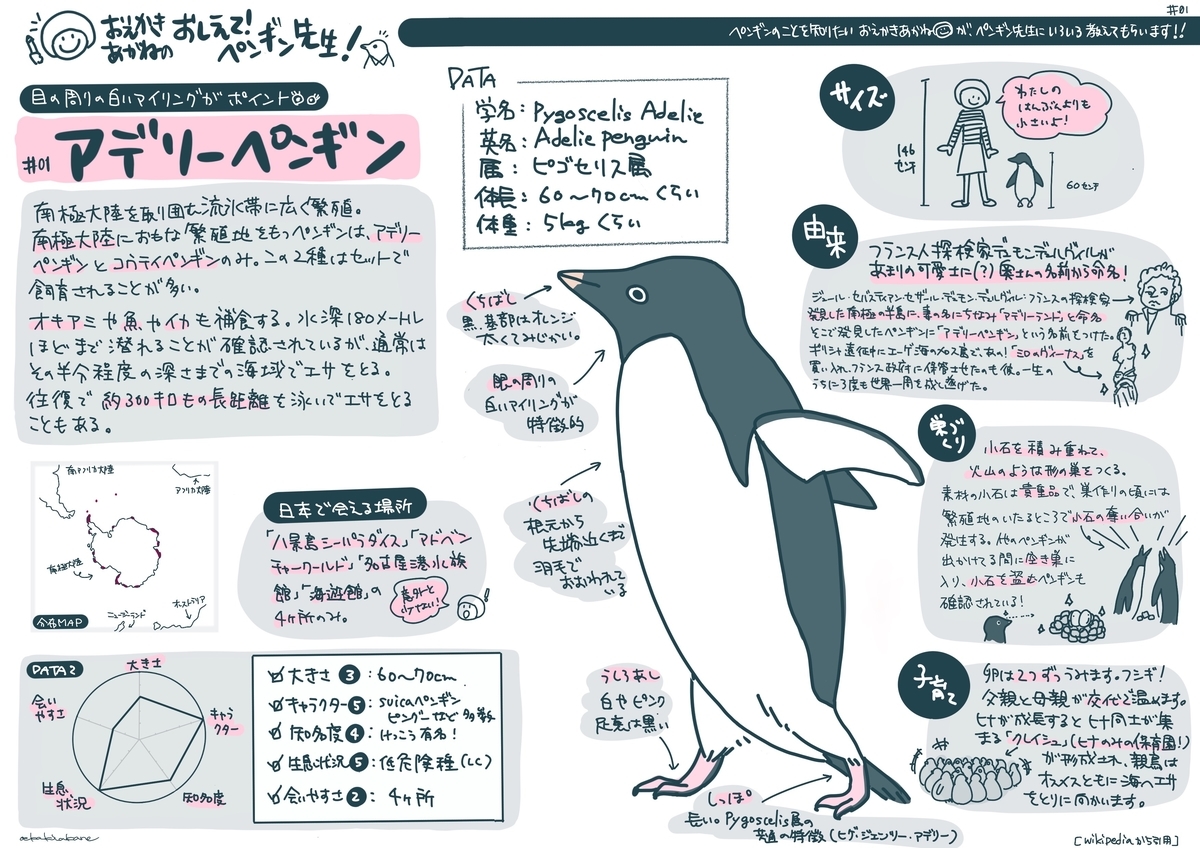 #01
おえかき
あかねの
おしえて!
ペンギン先生!
ペンギンのことを知りたい おえかきあかねが、ペンギン先生にいろいろ教えてもらいます!!
目の周りの白いアイリングがポイント
#01 アデリーペンギン
南極大陸を取り囲む流氷帯に広く繁殖。
南極大陸におもな繁殖地をもつペンギンは、アデリー
ペンギンとコウテイペンギンのみ。この2種はセットで
飼育されることが多い。
オキアミや魚やイカも補食する。水深180メートル
ほどまで潜れることが確認されているが、通常は
その半分程度の深さまでの海域でエサをとる。
往復で約300キロもの長距離を泳いでエサをとる
こともある。
DATA
学名:Pygoscelis Adelie
英名:Adelie penguin
属:ピゴセリス属
体長:60〜70cmくらい
体重:5kgくらい
サイズ
146
センチ
わたしの
はんぶんよりも
小さいよ!
60センチ
由来
フランス人探検家デュモン・デュルヴィルが
あまりの可愛さに(?)奥さんの名前から命名!
ジュール・セバスティアン・セザール・デュモン・デュルヴィル・フランスの探検家
発見した南極の半島に、妻の名にちなみ「アデリーランド」と命名
そこで発見したペンギンに「アデリーペンギン」という名前をつけた。
ギリシャ遠征中にエーゲ海のメロス島で、あの!「ミロのヴィーナス」を
買い入れ、フランス政府に保管させたのも彼。一生の
うちに3度も世界一周を成し遂げた。
くちばし
黒。基部はオレンジ
太くてみじかい。
眼の周りの
白いアイリングが
特徴的
くちばしの
根元から
先端近くまで
羽毛で
おおわれて
いる
うしろあし
白やピンク
足裏は黒い
しっぽ
長い。Pygoscelis属の
英名の特徴(ヒゲ・ジェンツー・アデリー)
巣づくり
小石を積み重ねて、
火山のような形の巣をつくる。
素材の小石は貴重品で、巣作りの頃には
繁殖地のいたるところで小石の奪い合いが
発生する。他のペンギンが
出かけてる間に空き巣に
入り、小石を盗むペンギンも
確認されている!
子育て
卵は2つずつうみます。フシギ!
父親と母親が交代で温めます。
ヒナが成長するとヒナ同士が集
まる「クレイシュ」(ヒナのみの保育園!)
が形成され、親鳥は
オスメスともに海へエサ
をとりに向かいます。
南アメリカ大陸
アフリカ大陸
南極大陸
ニュージーランド
オーストラリア
分布MAP
日本で会える場所
「八景島シーパラダイス」「アドベン
チャーワールド」「名古屋港水族
館」「海遊館」の
4ヶ所のみ。
意外と
少ない!
DATA2
大きさ
キャラ
クター
知名度
生息
状況
会い
やすさ
大きさ 3:60〜70cm
キャラクター 5:suicaペンギン
ピングーなど多数
知名度 4:けっこう有名!
生息状況 5:低危険種(LC)
会いやすさ 2:4ヶ所
oekakiakane
[wikipediaから引用]